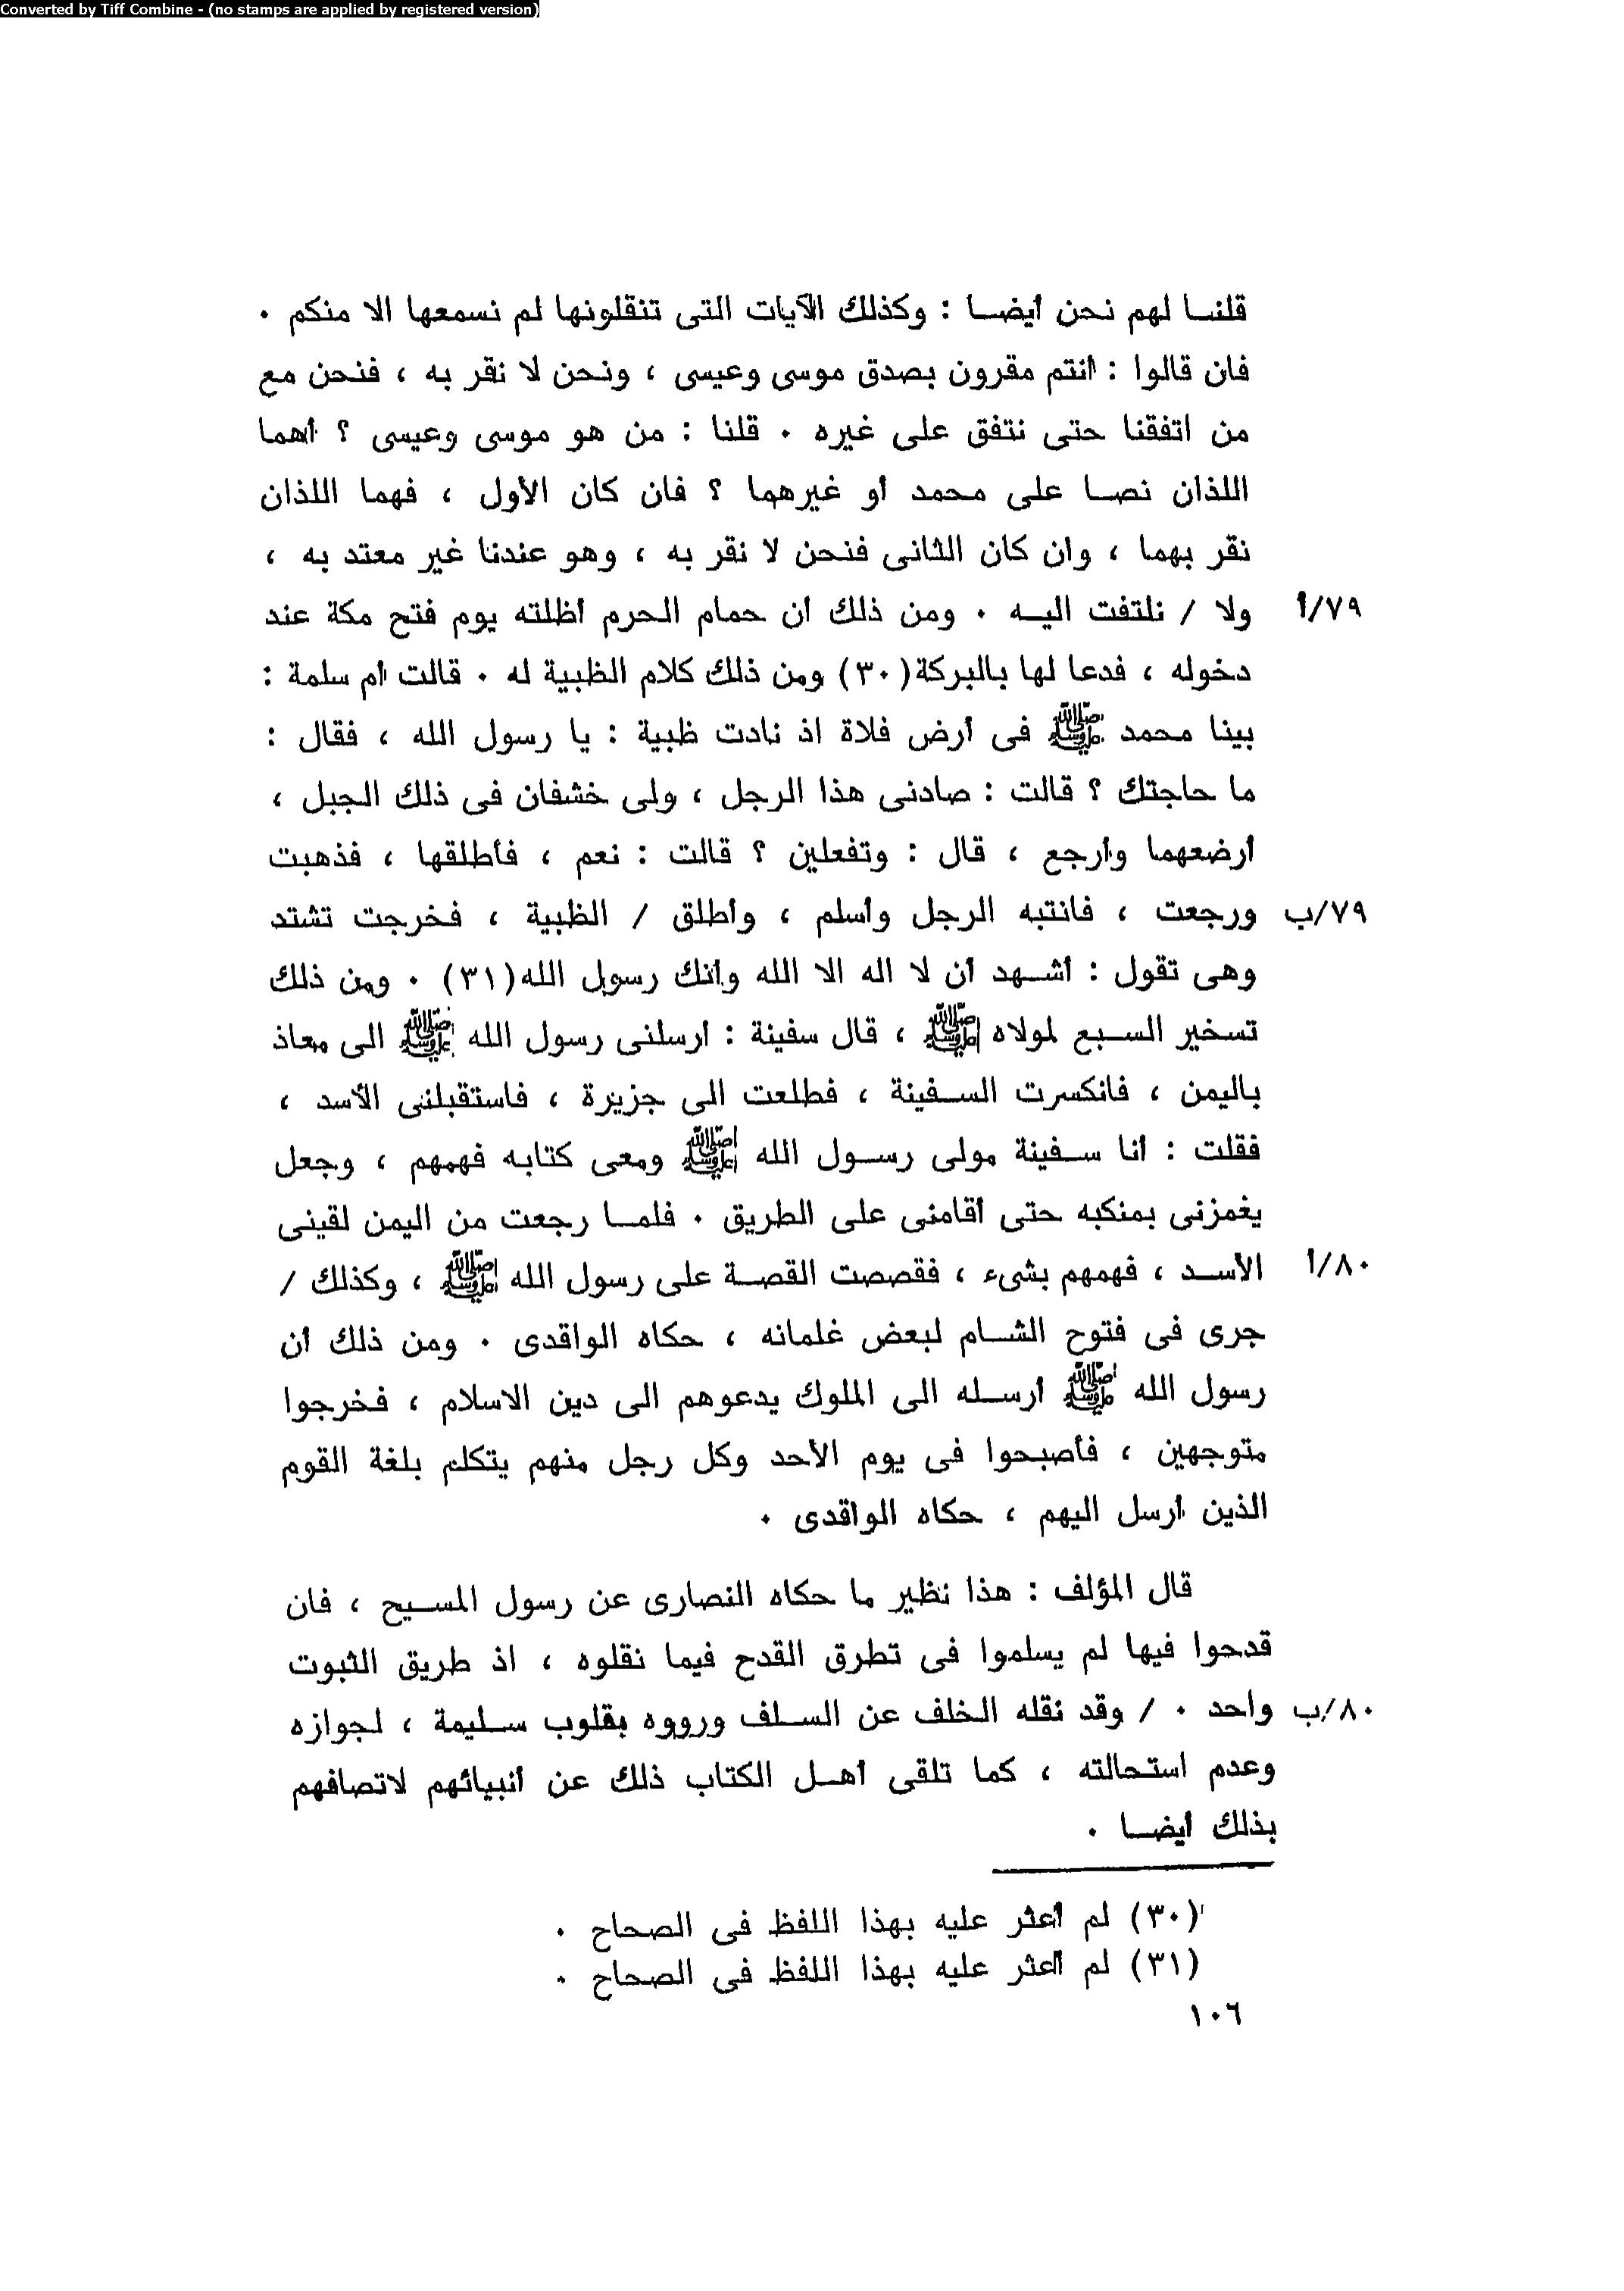 Converted by Tiff Combine - (no stamps are applied by registered version)
قلنـا لهم نحن أيضـا : وكذلك الآيات التى تنقلونها لم نسمعها الا منكم .
فان قالوا : أنتم مقرون بصدق موسى وعيسى ، ونحن لا نقر به ، فنحن مع
من اتفقنا حتى نتفق على غيره . قلنا : من هو موسى وعيسى ؟ أهما
اللذان نصـا على محمد أو غيرهما ؟ فان كان الأول ، فهما اللذان
نقر بهما ، وان كان الثانى فنحن لا نقر به ، وهو عندنا غير معتد به ،
٧٩/أ ولا / نلتفت اليـه . ومن ذلك أن حمام الحرم أظلته يوم فتح مكة عند
دخوله ، فدعا لها بالبركة(٣٠) ومن ذلك كلام الظبية له . قالت أم سلمة :
بينا محمد ﷺ فى أرض فلاة اذ نادت ظبية : يا رسول الله ، فقال :
ما حاجتك ؟ قالت : صادنى هذا الرجل ، ولى خشفان فى ذلك الجبل ،
أرضعهما وأرجع ، قال : وتفعلين ؟ قالت : نعم ، فأطلقها ، فذهبت
٧٩/ب ورجعت ، فانتبه الرجل وأسلم ، وأطلق / الظبية ، فخرجت تشتد
وهى تقول : أشـهد أن لا اله الا الله وأنك رسول الله(٣١) . ومن ذلك
تسخير السـبع لمولاه ﷺ ، قال سفينة : أرسلنى رسول الله ﷺ الى معاذ
باليمن ، فانكسرت السـفينة ، فطلعت الى جزيرة ، فاستقبلنى الأسد ،
فقلت : أنا سـفينة مولى رسـول الله ﷺ ومعى كتابه فهمهم ، وجعل
يغمزنى بمنكبه حتى أقامنى على الطريق . فلمـا رجعت من اليمن لقينى
٨٠/أ الأسـد ، فهمهم بشىء ، فقصصت القصـة على رسول الله ﷺ ، وكذلك /
جرى فى فتوح الشـام لبعض غلمانه ، حكاه الواقدى . ومن ذلك أن
رسول الله ﷺ أرسـله الى الملوك يدعوهم الى دين الاسلام ، فخرجوا
متوجهين ، فأصبحوا فى يوم الأحد وكل رجل منهم يتكلم بلغة القوم
الذين أرسل اليهم ، حكاه الواقدى .
قال المؤلف : هذا نظير ما حكاه النصارى عن رسول المسـيح ، فان
قدحوا فيها لم يسلموا فى تطرق القدح فيما نقلوه ، اذ طريق الثبوت
٨٠/ب واحد . / وقد نقله الخلف عن السـلف ورووه بقلوب سـليمة ، لجوازه
وعدم استحالته ، كما تلقى أهـل الكتاب ذلك عن أنبيائهم لاتصافهم
بذلك أيضـا .
(٣٠) لم أعثر عليه بهذا اللفظ فى الصحاح .
(٣١) لم أعثر عليه بهذا اللفظ فى الصحاح .
١٠٦